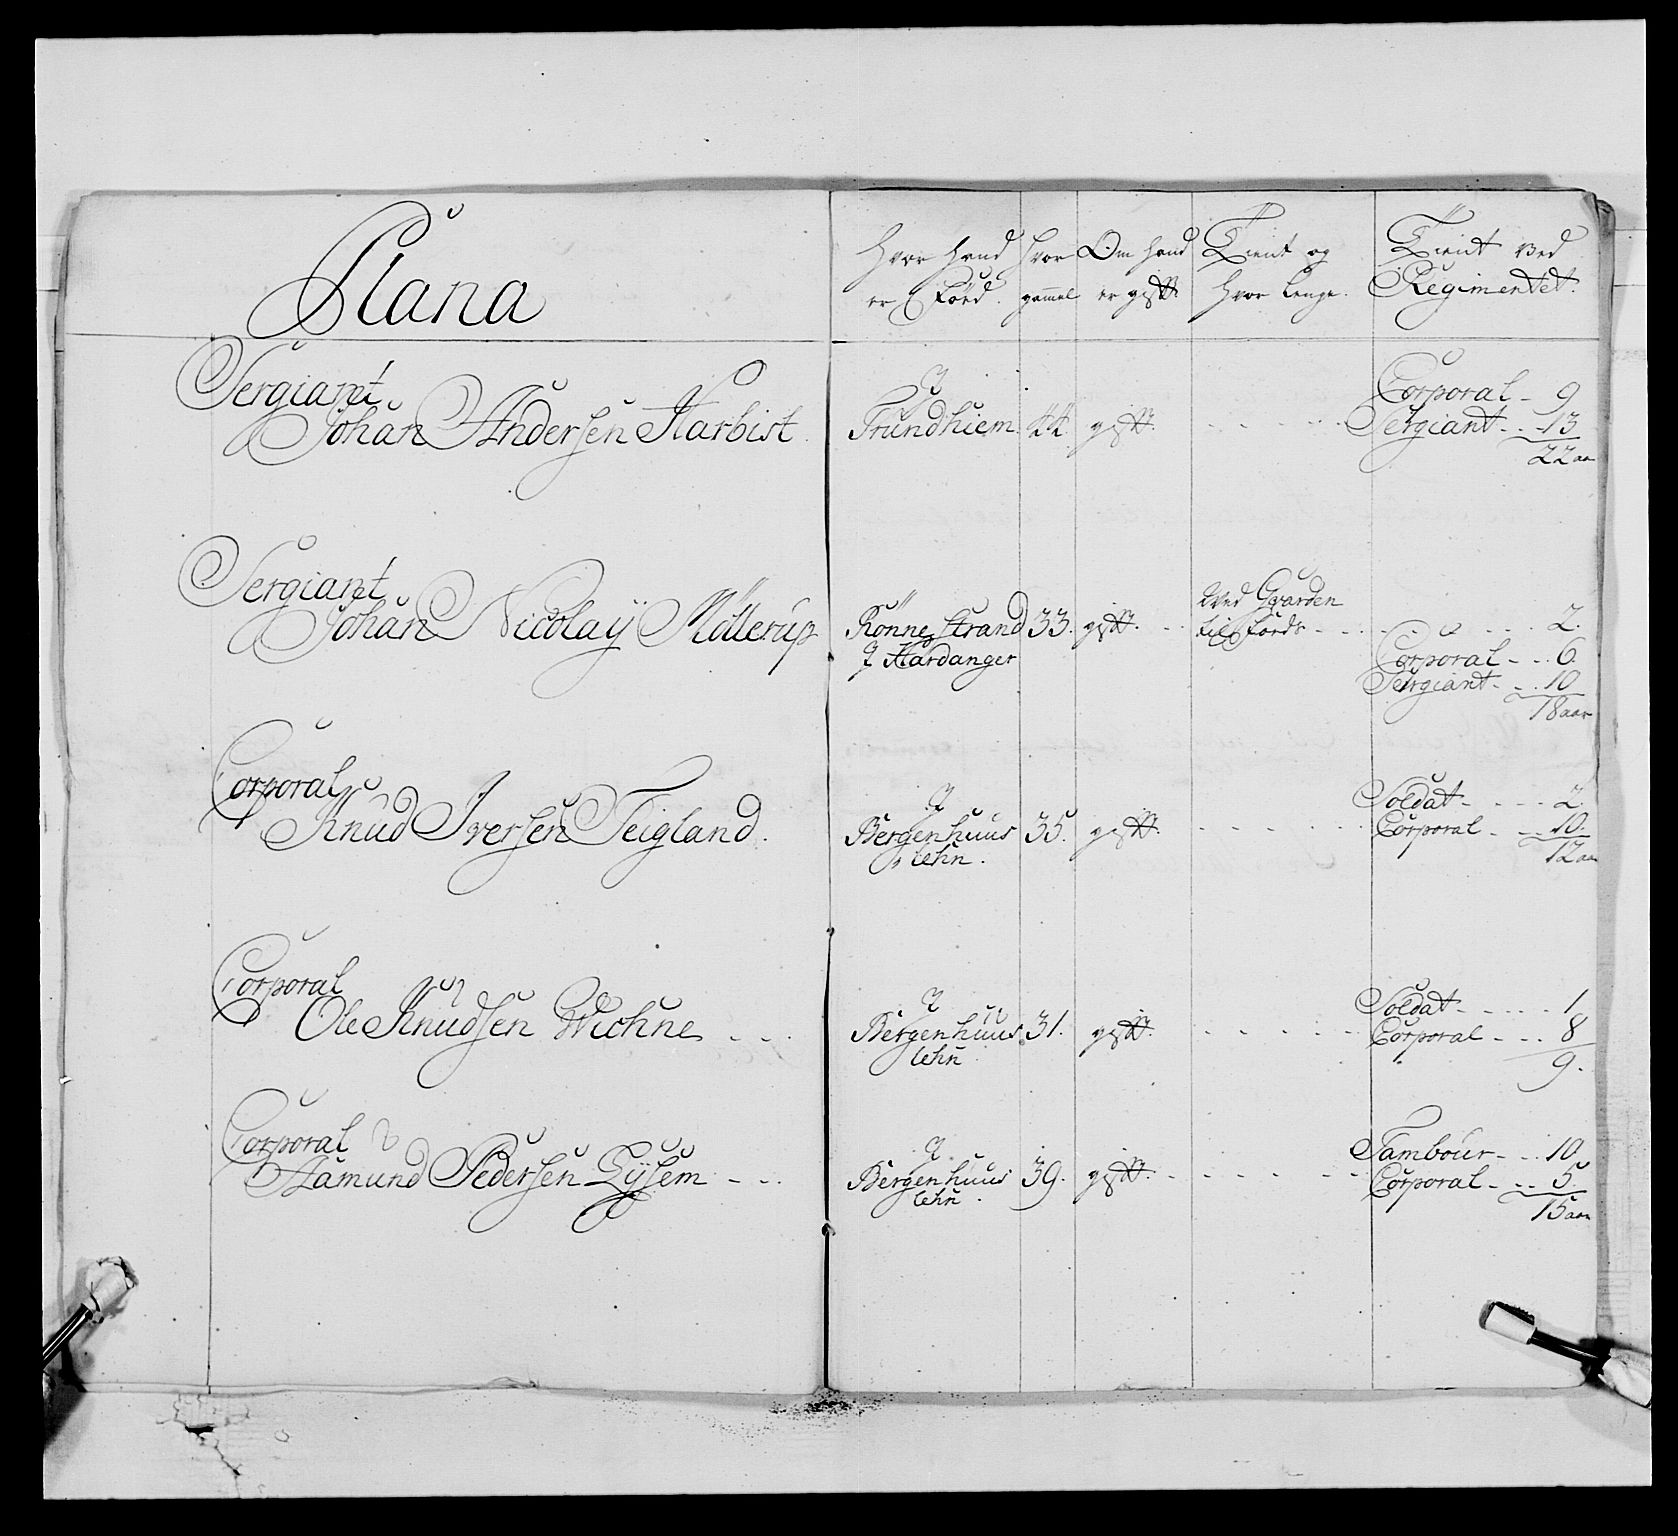 Nana
Hvor hand er Föed.
Hvor gamel
Om hand er gift
Tient og Hvor lenge.
Tient ved Regimentet.
Sergiant
Johan Andersen Harbist
J
Trundhiem
44
gift
Corporal - 9
Sergiant - 13
22 aar
Sergiant
Johan Nicolaÿ Möllerup
Rönne strand 33. gift
J Hardanger
Ved Gvarden
til Foeds - - - 2.
Corporal - - 6
Sergiant - - 10
18 aar
Corporal
Knud Iversen Teigland.
J
Bergenhuus 35. gift
lehn.
Soldat - - - 2
Corporal - - 10.
12 aar
Corporal
Ole Knudsen Wichne - - -
J
Bergenhuus 31. gift
lehn
Soldat - - - - 1
Corporal - - - 8
9.
Corporal
Aamund Pedersen Lÿsem - - -
J
Bergenhuus 39. gift
lehn.
Tambour - - 10
Corporal - - - 5.
15 aar